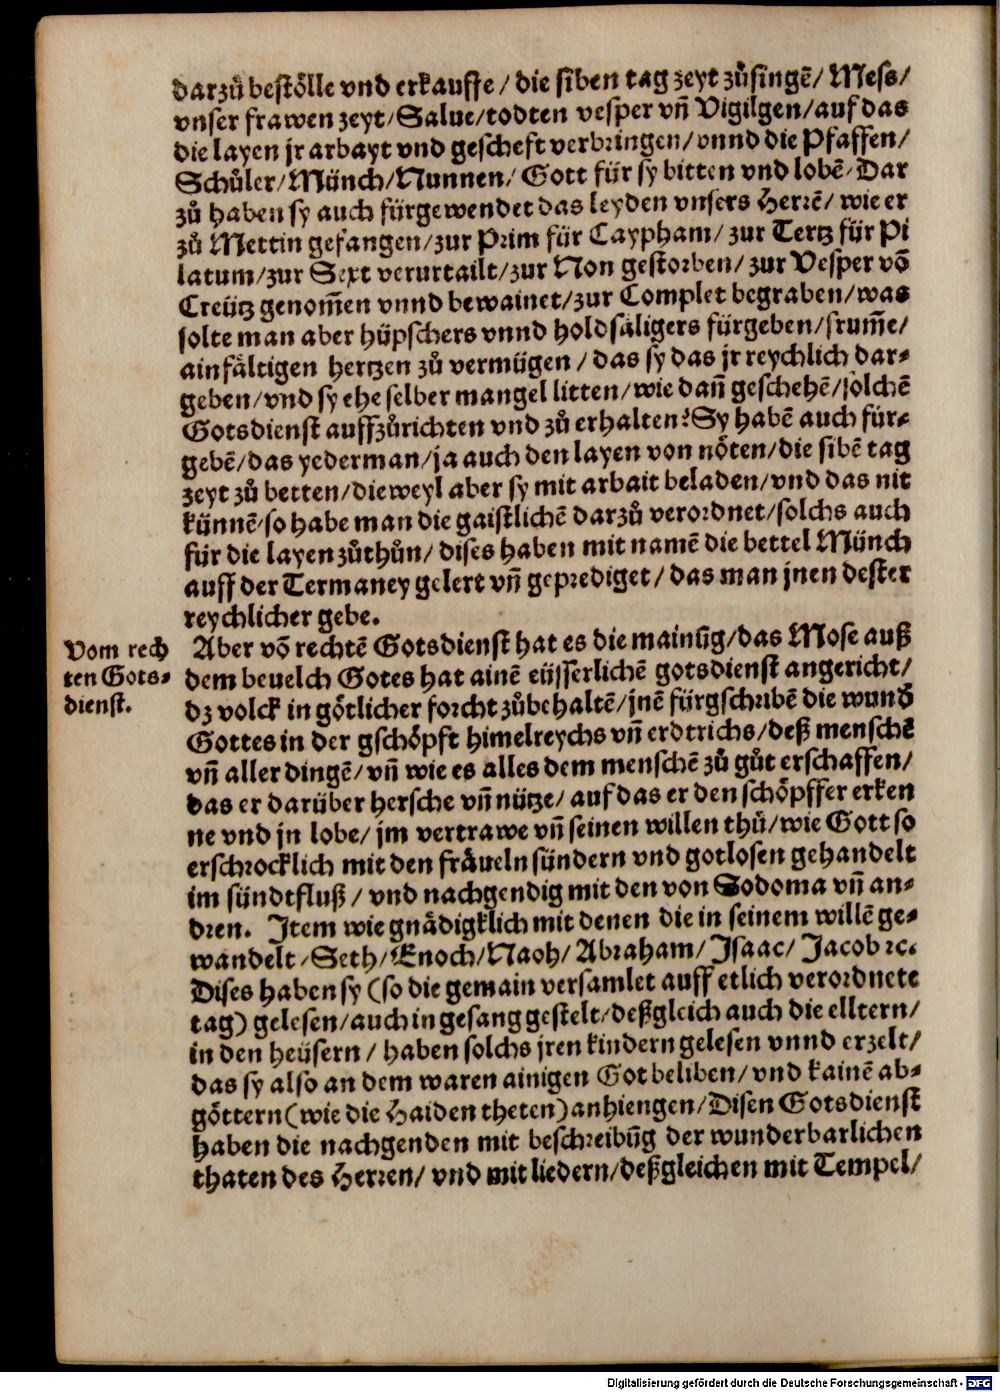 darzů bestölle vnd erkauffe / die siben tag zeyt zůsingē / Mess /
vnser frawen zeyt / Salue / todten vesper vñ Vigilgen / auf das
die layen jr arbayt vnd gescheft verbringen / vnnd die Pfaffen /
Schůler / Münch / Nunnen / Gott für sy bitten vnd lobē / Dar
zů haben sy auch fürgewendet das leyden vnsers Herrē / wie er
zů Mettin gefangen / zur Prim für Caypham / zur Tertz für Pi
latum / zur Sext verurtailt / zur Non gestorben / zur Vesper vō
Creütz genom̄en vnnd bewainet / zur Complet begraben / was
solte man aber hüpschers vnnd holdsäligers fürgeben / frum̄e /
ainfältigen hertzen zů vermügen / das sy das jr reychlich dar-
geben / vnd sy ehe selber mangel litten / wie dañ geschehē / solchē
Gotsdienst auffzůrichten vnd zů erhalten? Sy habē auch für-
gebē / das yederman / ja auch den layen von nöten / die sibē tag
zeyt zů betten / dieweyl aber sy mit arbait beladen / vnd das nit
künnē / so habe man die gaistlichē darzů verordnet / solchs auch
für die layen zůthůn / dises haben mit namē die bettel Münch
auff der Termaney gelert vñ geprediget / das man jnen dester
reychlicher gebe.
Vom rech
ten Gots-
dienst.
Aber vō rechtē Gotsdienst hat es die mainūg / das Mose auß
dem beuelch Gotes hat ainē eüsserlichē gotsdienst angericht /
dz volck in götlicher forcht zůbehaltē / jnē fürgschribē die wund̄
Gottes in der gschöpft himelreychs vñ erdtrichs / deß menschē
vñ aller dingē / vñ wie es alles dem menschē zů gůt erschaffen /
das er darüber hersche vñ nütze / auf das er den schöpffer erken
ne vnd jn lobe / jm vertrawe vñ seinen willen thů / wie Gott so
erschrocklich mit den fräueln sündern vnd gotlosen gehandelt
im sündtfluß / vnd nachgendig mit den von Sodoma vñ an-
dren. Item wie gnädigklich mit denen die in seinem willē ge-
wandelt / Seth / Enoch / Naoh / Abraham / Isaac / Jacob ꝛc.
Dises haben sy (so die gemain versamlet auff etlich verordnete
tag) gelesen / auch in gesang gestelt / deßgleich auch die elltern /
in den heüsern / haben solchs jren kindern gelesen vnnd erzelt /
das sy also an dem waren ainigen Got beliben / vnd kainē ab-
göttern (wie die Haiden theten) anhiengen / Disen Gotsdienst
haben die nachgenden mit beschreibūg der wunderbarlichen
thaten des Herren / vnd mit liedern / deßgleichen mit Tempel /
Digitalisierung gefördert durch die Deutsche Forschungsgemeinschaft - DFG